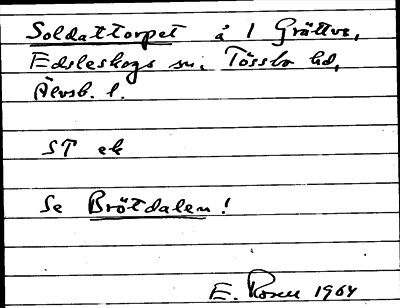 Soldattorpet å 1 Grättve,
Edsleskogs sn. Tössbo hd,
Älvsb. l.
ST ek
Se Brötdalen!
E. Rosell 1964